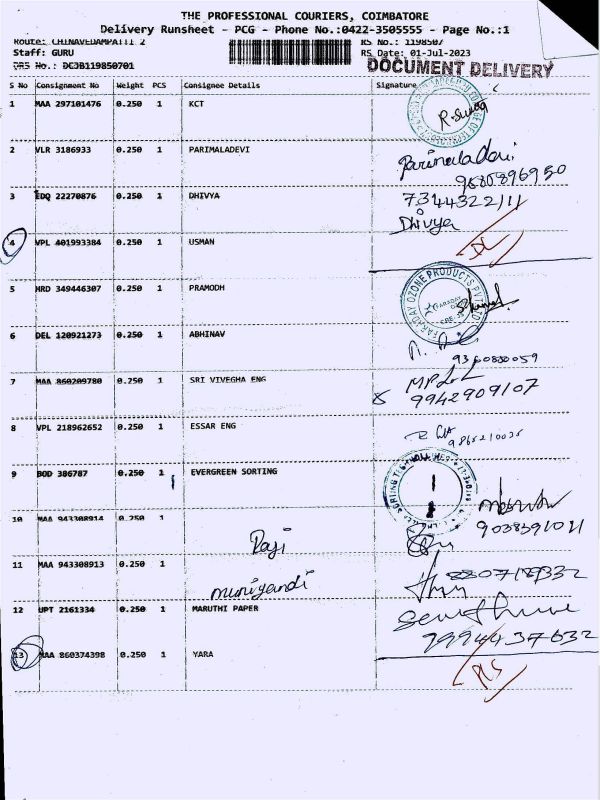 THE PROFESSIONAL COURIERS, COIMBATORE
Delivery Runsheet - PCG - Phone No.:0422-3505555 - Page No.:1
Route: CHINAVEDAMPATTI 2 RS No.: 1198507
Staff: GURU RS Date: 01-Jul-2023
DRS No.: DCJB119850701 DOCUMENT DELIVERY
S No Consignment No Weight PCS Consignee Details Signature
1 MAA 297101476 0.250 1 KCT
2 VLR 3186933 0.250 1 PARIMALADEVI Parimaladevi
9688896950
3 EDQ 22270876 0.250 1 DHIVYA 7344322111
Dhivya
4 VPL 401993384 0.250 1 USMAN DL
5 HRD 349446307 0.250 1 PRAMODH FARADAY OZONE PRODUCTS PVT LTD
6 DEL 120921273 0.250 1 ABHINAV
9360880059
7 MAA 860209780 0.250 1 SRI VIVEGHA ENG
9942909107
8 VPL 218962652 0.250 1 ESSAR ENG
9 BOD 386787 0.250 1 EVERGREEN SORTING
10 MAA 943308914 0.250 1 Raji 9038391011
11 MAA 943308913 0.250 1 muniyandi
12 UPT 2161334 0.250 1 MARUTHI PAPER
7994437632
13 MAA 860374398 0.250 1 YARA